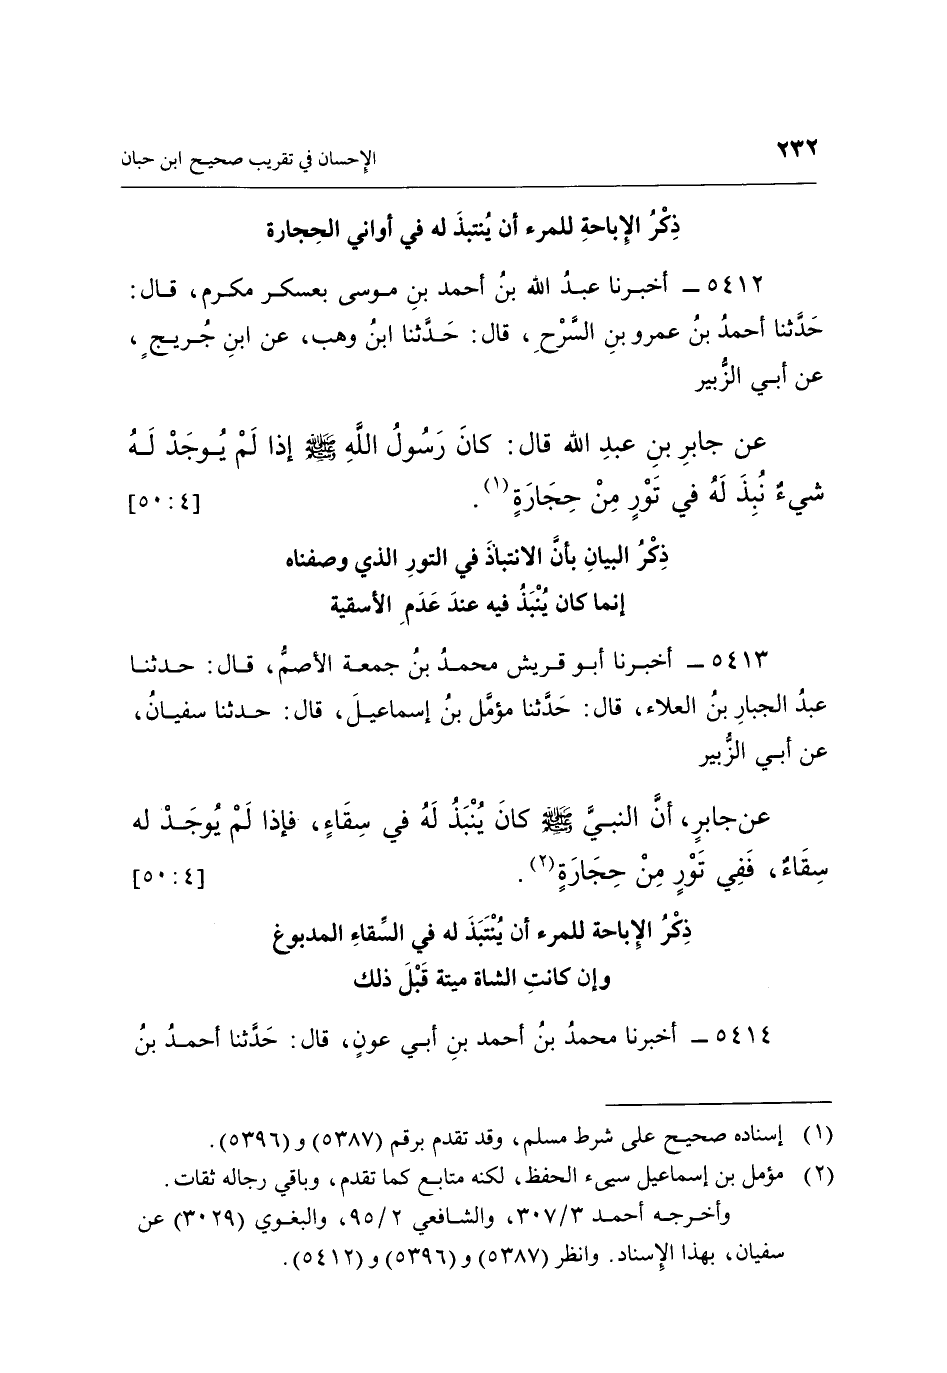 ٢٣٢
الإحسان في تقريب صحيح ابن حبان
ذِكْرُ الإِباحةِ للمرء أن يُنتبذَ له في أواني الحِجارة
٥٤١٢ ــ أخبرنا عبدُ الله بنُ أحمد بنِ موسى بعسكر مكرم، قال:
حَدَّثنا أحمدُ بنُ عمرو بنِ السَّرْحِ، قال: حَدَّثنا ابنُ وهب، عن ابنِ جُريجٍ،
عن أبي الزُّبير
عن جابرِ بنِ عبدِ الله قال: كانَ رَسُولُ اللَّهِ ﷺ إذا لَمْ يُوجَدْ لَهُ
شيءٌ نُبِذَ لَهُ في تَوْرٍ مِنْ حِجَارَةٍ(١). [٥٠:٤]
ذِكْرُ البيانِ بأنَّ الانتباذَ في التورِ الذي وصفناه
إنما كان يُنْبَذُ فيه عندَ عَدَمِ الأسقية
٥٤١٣ ــ أخبرنا أبو قريش محمدُ بنُ جمعة الأصمُّ، قال: حدثنا
عبدُ الجبارِ بنُ العلاء، قال: حَدَّثنا مؤمَّل بنُ إسماعيلَ، قال: حدثنا سفيانُ،
عن أبي الزُّبير
عن جابرٍ، أنَّ النبيَّ ﷺ كانَ يُنْبَذُ لَهُ في سِقَاءٍ، فإذا لَمْ يُوجَدْ له
سِقَاءٌ، فَفِي تَوْرٍ مِنْ حِجَارَةٍ(٢). [٥٠:٤]
ذِكْرُ الإِباحة للمرء أن يُنْتَبَذَ له في السِّقاءِ المدبوغ
وإن كانتِ الشاة ميتة قَبْلَ ذلك
٥٤١٤ ــ أخبرنا محمدُ بنُ أحمد بنِ أبي عونٍ، قال: حَدَّثنا أحمدُ بنُ
(١) إسناده صحيح على شرط مسلم، وقد تقدم برقم (٥٣٨٧) و (٥٣٩٦).
(٢) مؤمل بن إسماعيل سيىء الحفظ، لكنه متابع كما تقدم، وباقي رجاله ثقات.
وأخرجه أحمد ٣٠٧/٣، والشافعي ٩٥/٢، والبغوي (٣٠٢٩) عن
سفيان، بهذا الإِسناد. وانظر (٥٣٨٧) و (٥٣٩٦) و (٥٤١٢).